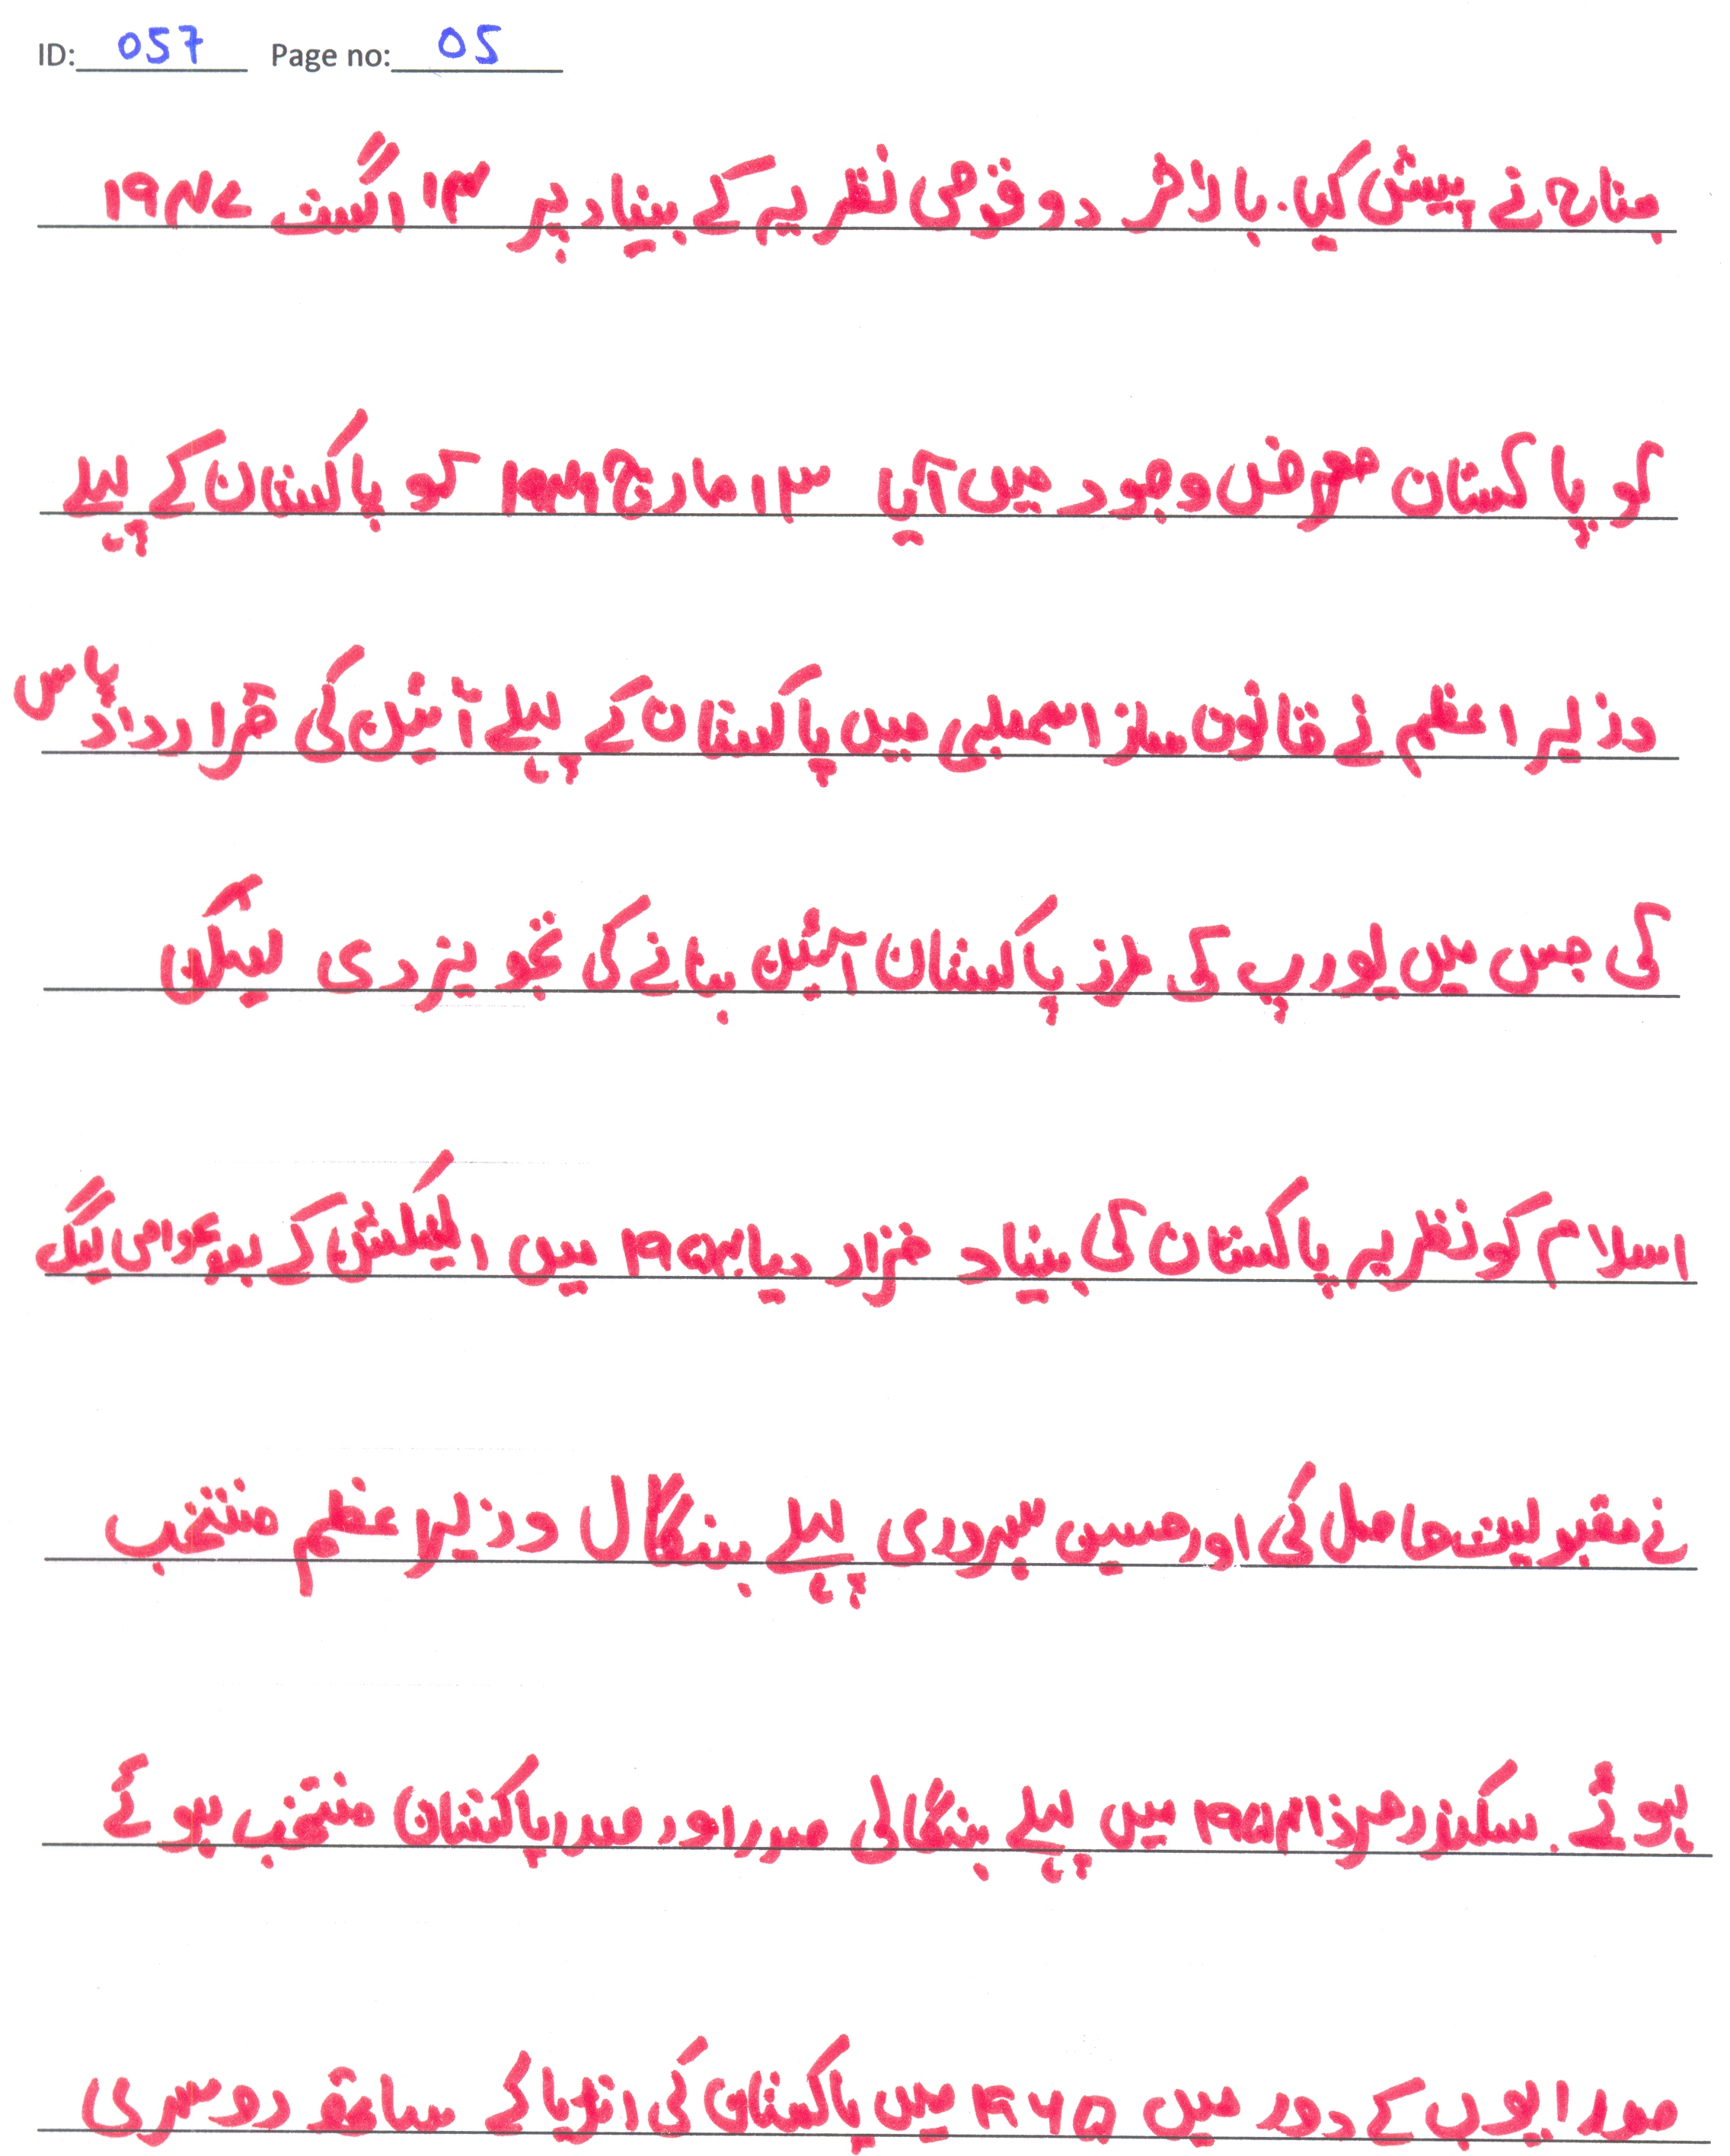 ID: 057 Page no: 05
جناح نے پیش کیا۔ بالاخر دو قومی نظریہ کے بنیاد پر ۱۴ اگست ۱۹۴۷
کو پاکستان معرض وجود میں آیا ۱۳ مارچ ۱۹۴۹ کو پاکستان کے پہلے
وزیر اعظم نے قانون ساز اسمبلی میں پاکستان کے پہلے آئین کی قرارداد پاس
کی جس میں یورپ کی طرز پاکستان آئین بنانے کی تجویز دی لیکن
اسلام کو نظریہ پاکستان کی بنیاد قرار دیا۔ ۱۹۵۴ میں الیکشن کے بعد عوامی لیگ
نے مقبولیت حاصل کی اور حسین سہروردی پہلے بنگال وزیر اعظم منتخب
ہوئے۔ سکندر مرزا ۱۹۵۶ میں پہلے بنگالی صدر اور صدر پاکستان منتخب ہوئے
صدر ایوب کے دور میں ۱۹۶۵ میں پاکستان کی انڈیا کے ساتھ دوسری